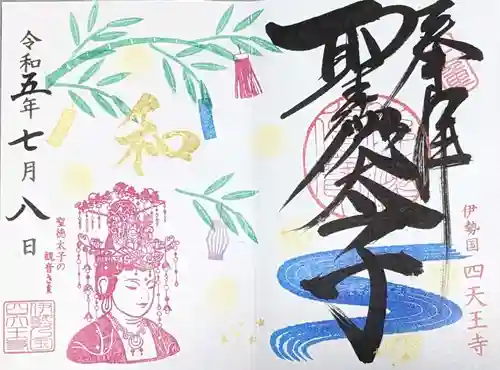 奉拝
聖徳太子
伊勢国 四天王寺
和
令和五年七月八日
聖徳太子の
観音さま